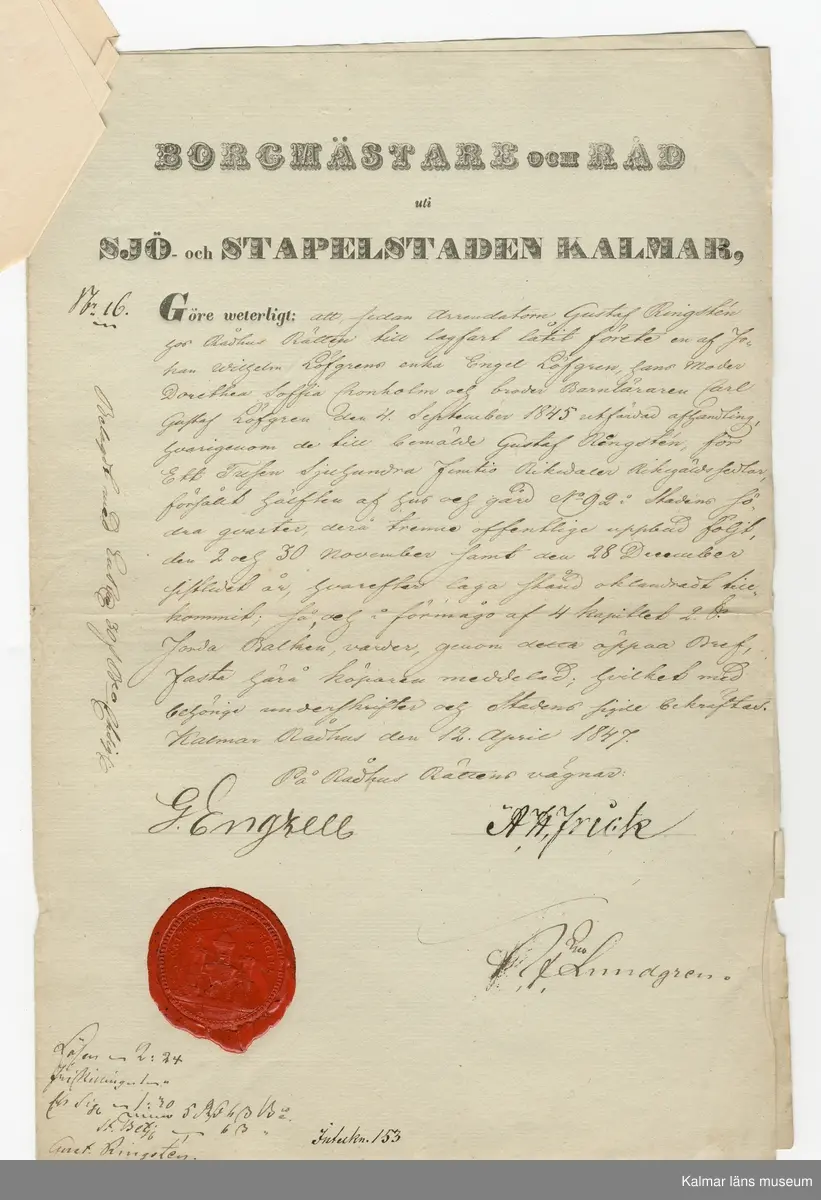 BORGMÄSTARE OCH RÅD
uti
SJÖ- och STAPELSTADEN KALMAR,
No 16.
Göre weterligt: att, sedan Arrendatorn Gustaf Ringstén
hos Rådhus Rätten till lagfart låtit förete en af Jo-
han Wilhelm Löfgrens enka Engel Löfgren, hans Moder
Dorothea Soffia Cronholm och broder Barnläraren Carl
Gustaf Löfgren den 4. September 1845 utfärdad afhandling,
hvarigenom de till bemälde Gustaf Ringstén, för
Ett Tusen Sjuhundra Femtio Riksdaler Riksgäldssedlar,
försålt hälften af hus och gård No 92 i Stadens Sö-
dra qvarter, derå trenne offentlige uppbud följt,
den 2 och 30 November samt den 28 December
sistlidet år, hvarefter laga stånd oklandradt till-
kommit; så, och i förmågo af 4 kapitlet 2 §.
Jorda Balken, varder, genom detta öppna Bref,
fasta härå köparen meddelad; hvilket med
behörige underskrifter och Stadens sigill bekräftas.
Kalmar Rådhus den 12. April 1847.
På Rådhus Rättens vägnar:
G. Engzell
A. W. Frick
Lundgren.
Belagdt med
Lösen 2: 24
1: 20
Gust. Ringsten.
Inteckn. 153
Kalmar läns museum